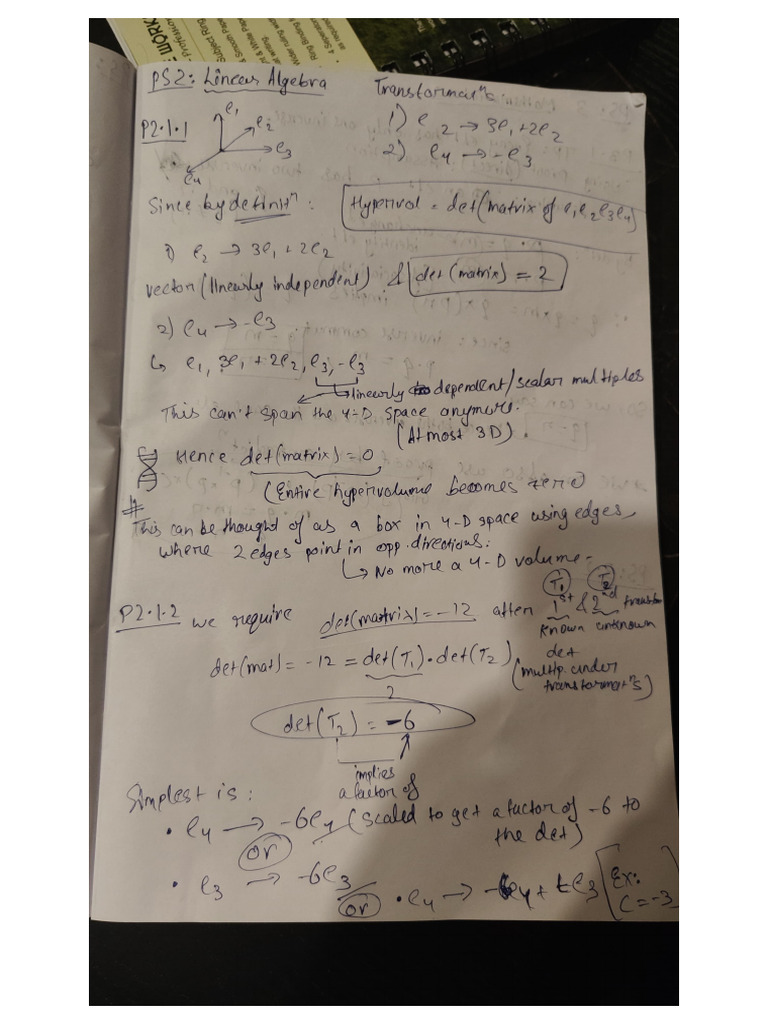 PS2: Linear Algebra
Transformatⁿs
P2.1.1
e1
e2
e3
e4
1) e2 → 3e1+2e2
2) e4 → -e3
Since by definitⁿ:
Hypervol = det(matrix of e1e2e3e4)
1) e2 → 3e1+2e2
vector (linearly independent) & det(matrix) = 2
2) e4 → -e3
↳ e1, 3e1+2e2, e3, -e3
linearly dependent/scalar multiples
This can't span the 4-D space anymore.
(Atmost 3D).
Hence det(matrix)=0
(Entire hypervolume becomes zero)
#
This can be thought of as a box in 4-D space using edges,
where 2 edges point in opp. directions:
↳ No more a 4-D volume.
T1 T2
P2.1.2 we require det(matrix)=-12 after 1st & 2nd transfor
known unknown
det(mat)=-12 = det(T1)·det(T2)
2
(det
multip. under
transformatⁿs)
det(T2) = -6
implies
a factor of
Simplest is:
• e4 → -6e4 (scaled to get a factor of -6 to
the det)
or
• e3 → -6e3
or • e4 → -6e4 + ce3 [Ex:
C=-3]
WORK
- Profession
Subject Ring
& Smooth Pape
& White Pape
4 Seperator